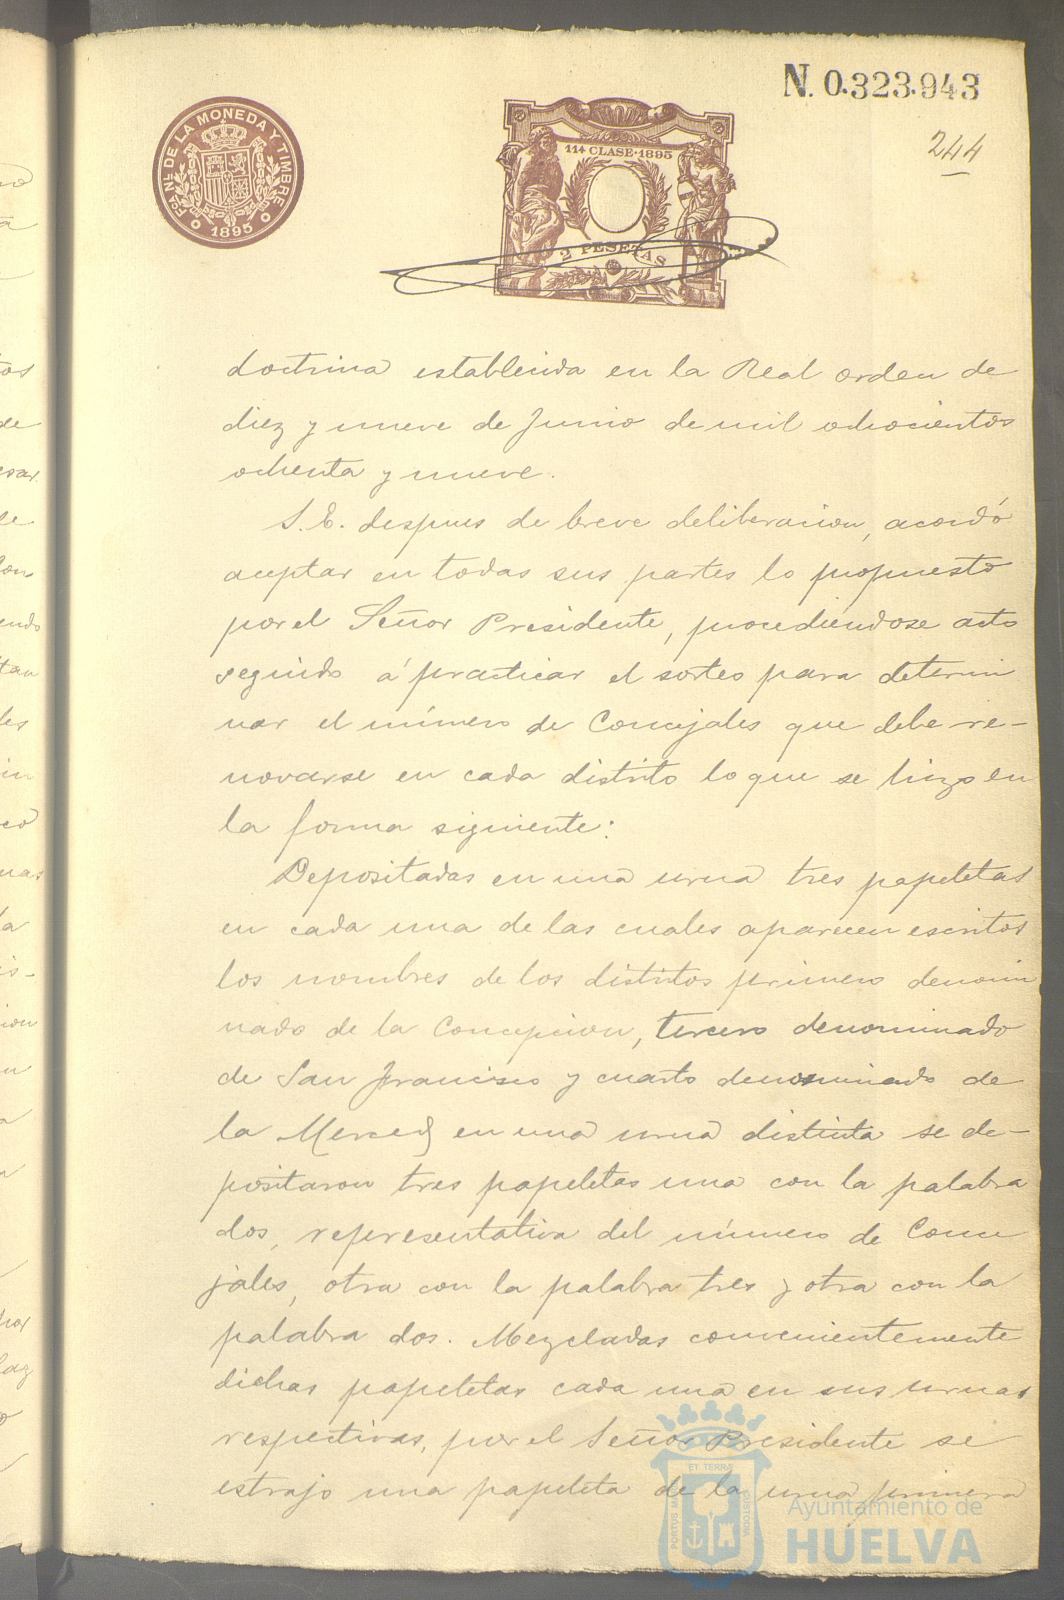 N. 0.323.943
244
FCA. NL. DE LA MONEDA Y TIMBRE
1895
11ª CLASE·1895
2 PESETAS
doctrina establecida en la Real orden de
diez y nueve de Junio de mil ochocientos
ochenta y nueve.
S. E. despues de breve deliberacion, acordó
aceptar en todas sus partes lo propuesto
por el Señor Presidente, procediendose acto
seguido á practicar el sorteo para determi
nar el número de Concejales que debe re-
novarse en cada distrito lo que se hizo en
la forma siguiente:
Depositadas en una urna tres papeletas
en cada una de las cuales aparecen escritos
los nombres de los distritos primero denomi
nado de la Concepcion, tercero denominado
de San Francisco y cuarto denominado de
la Merced en una urna distinta se de-
positaron tres papeletas una con la palabra
dos, representativa del número de Conce
jales, otra con la palabra tres y otra con la
palabra dos. Mezcladas convenientemente
dichas papeletas cada una en sus urnas
respectivas, por el Señor Presidente se
estrajo una papeleta de la urna primera
PORTUS MARIS ET TERRAE CUSTODIA
Ayuntamiento de
HUELVA